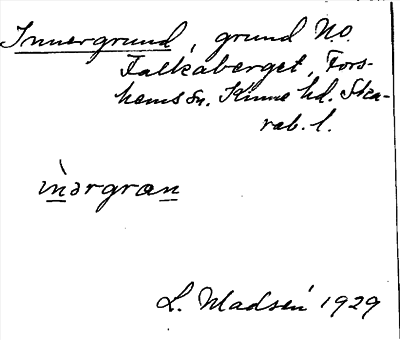 Innergrund, grund NO.
Falkaberget, Fors-
hems sn. Kinne hd. Ska-
rab. l.
ìnərgrən
L. Madsén 1929